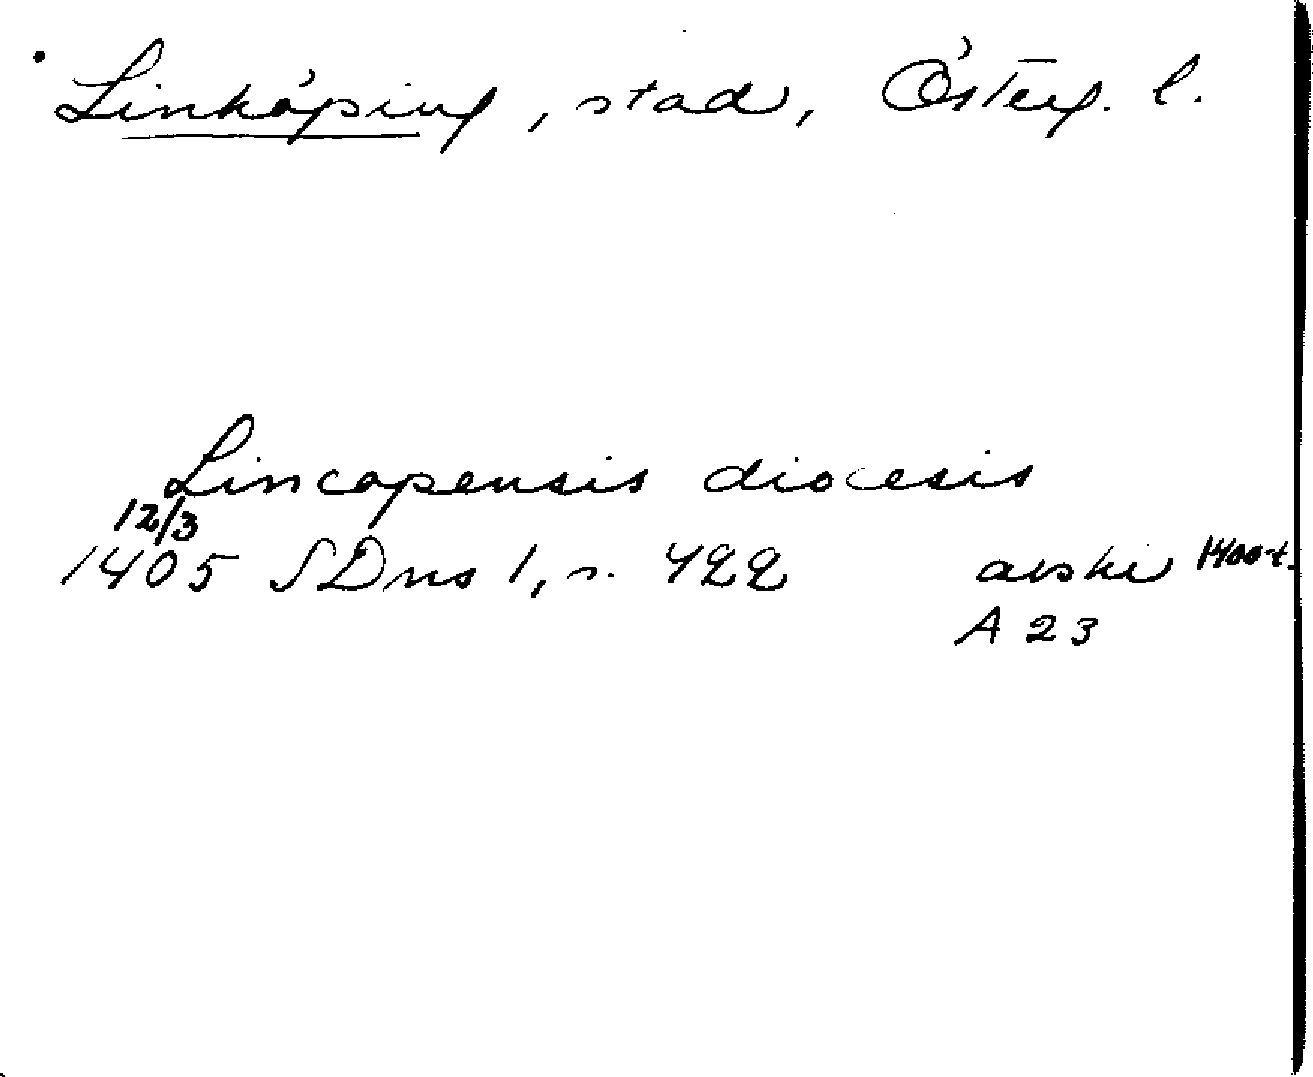 Linköping, stad, Österg. l.
Lincopensis diocesis
12/3
1405 SDns 1, s. 422 avskr 1400-t.
A 23